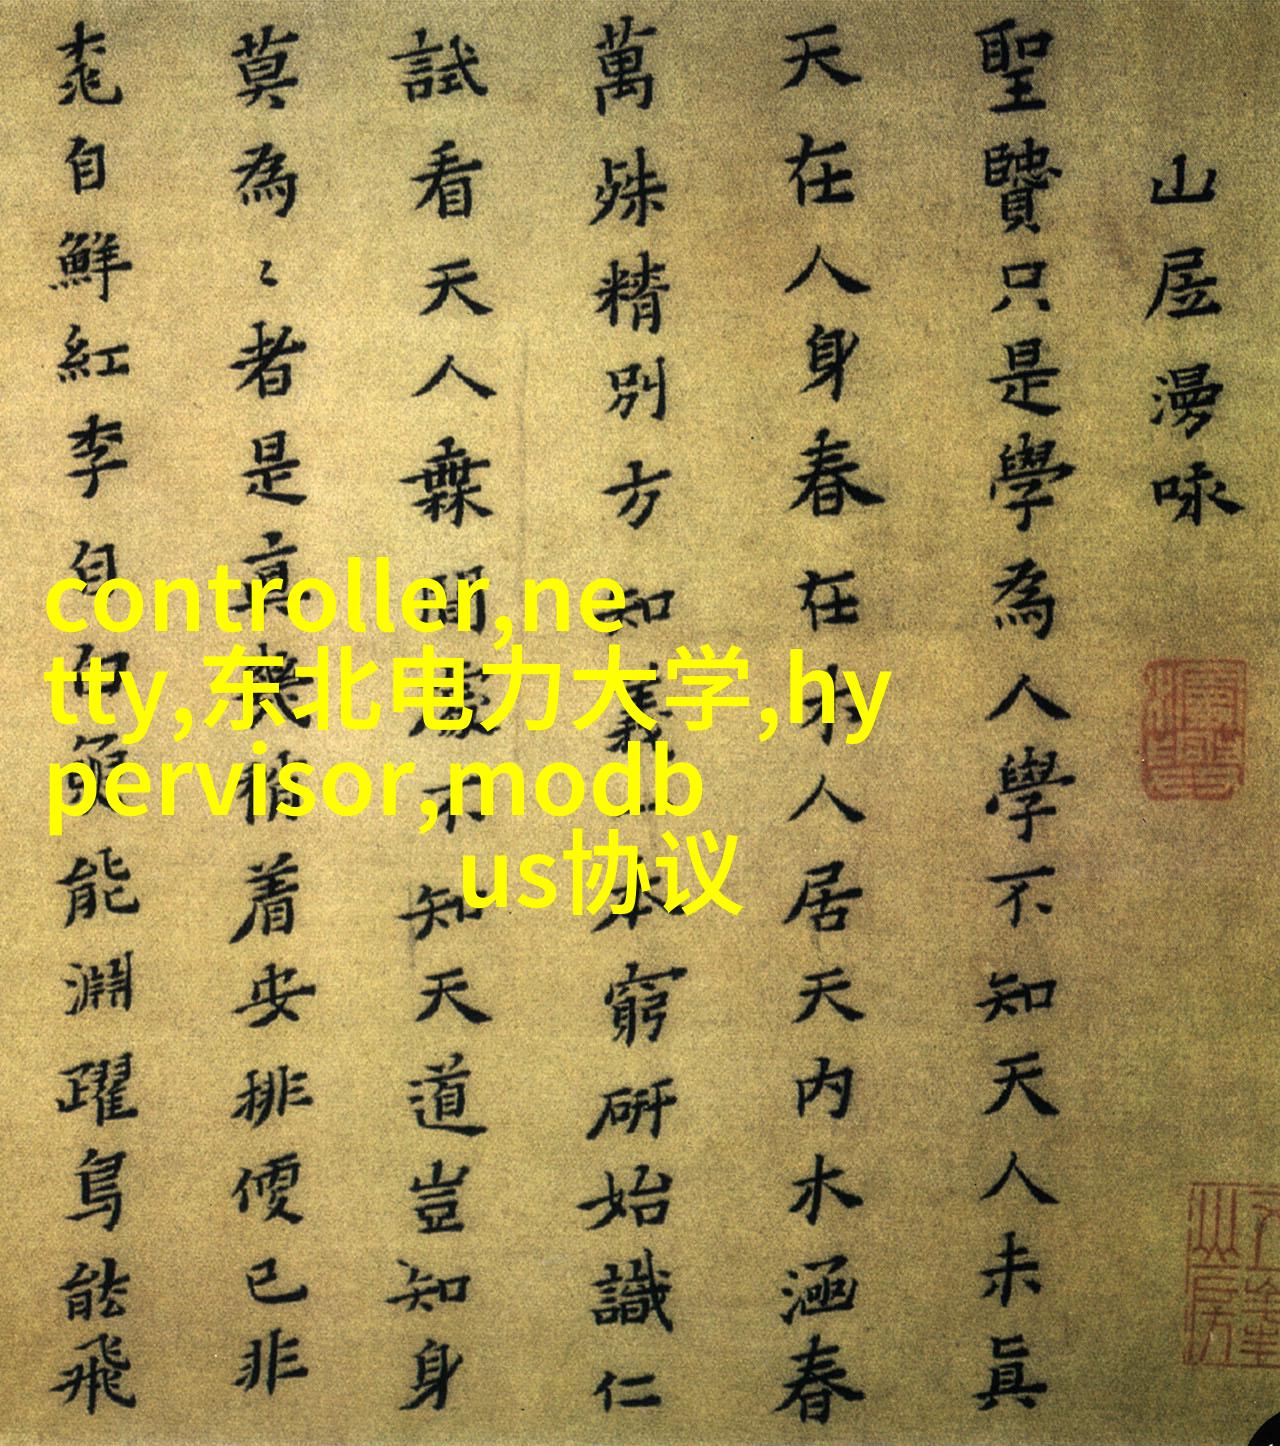 山居漫咏
聖贒只是學為人學不知天人未真
天在人身春在木人居天內水涵春
萬殊精別方知義一本窮研始識仁
試看天人橆間處不知天道豈知身
莫為〻者是真着安排便已非
桃自鮮紅李自白魚能淵躍鳥能飛
controller,ne
tty,东北电力大学,hy
pervisor,modb
us协议